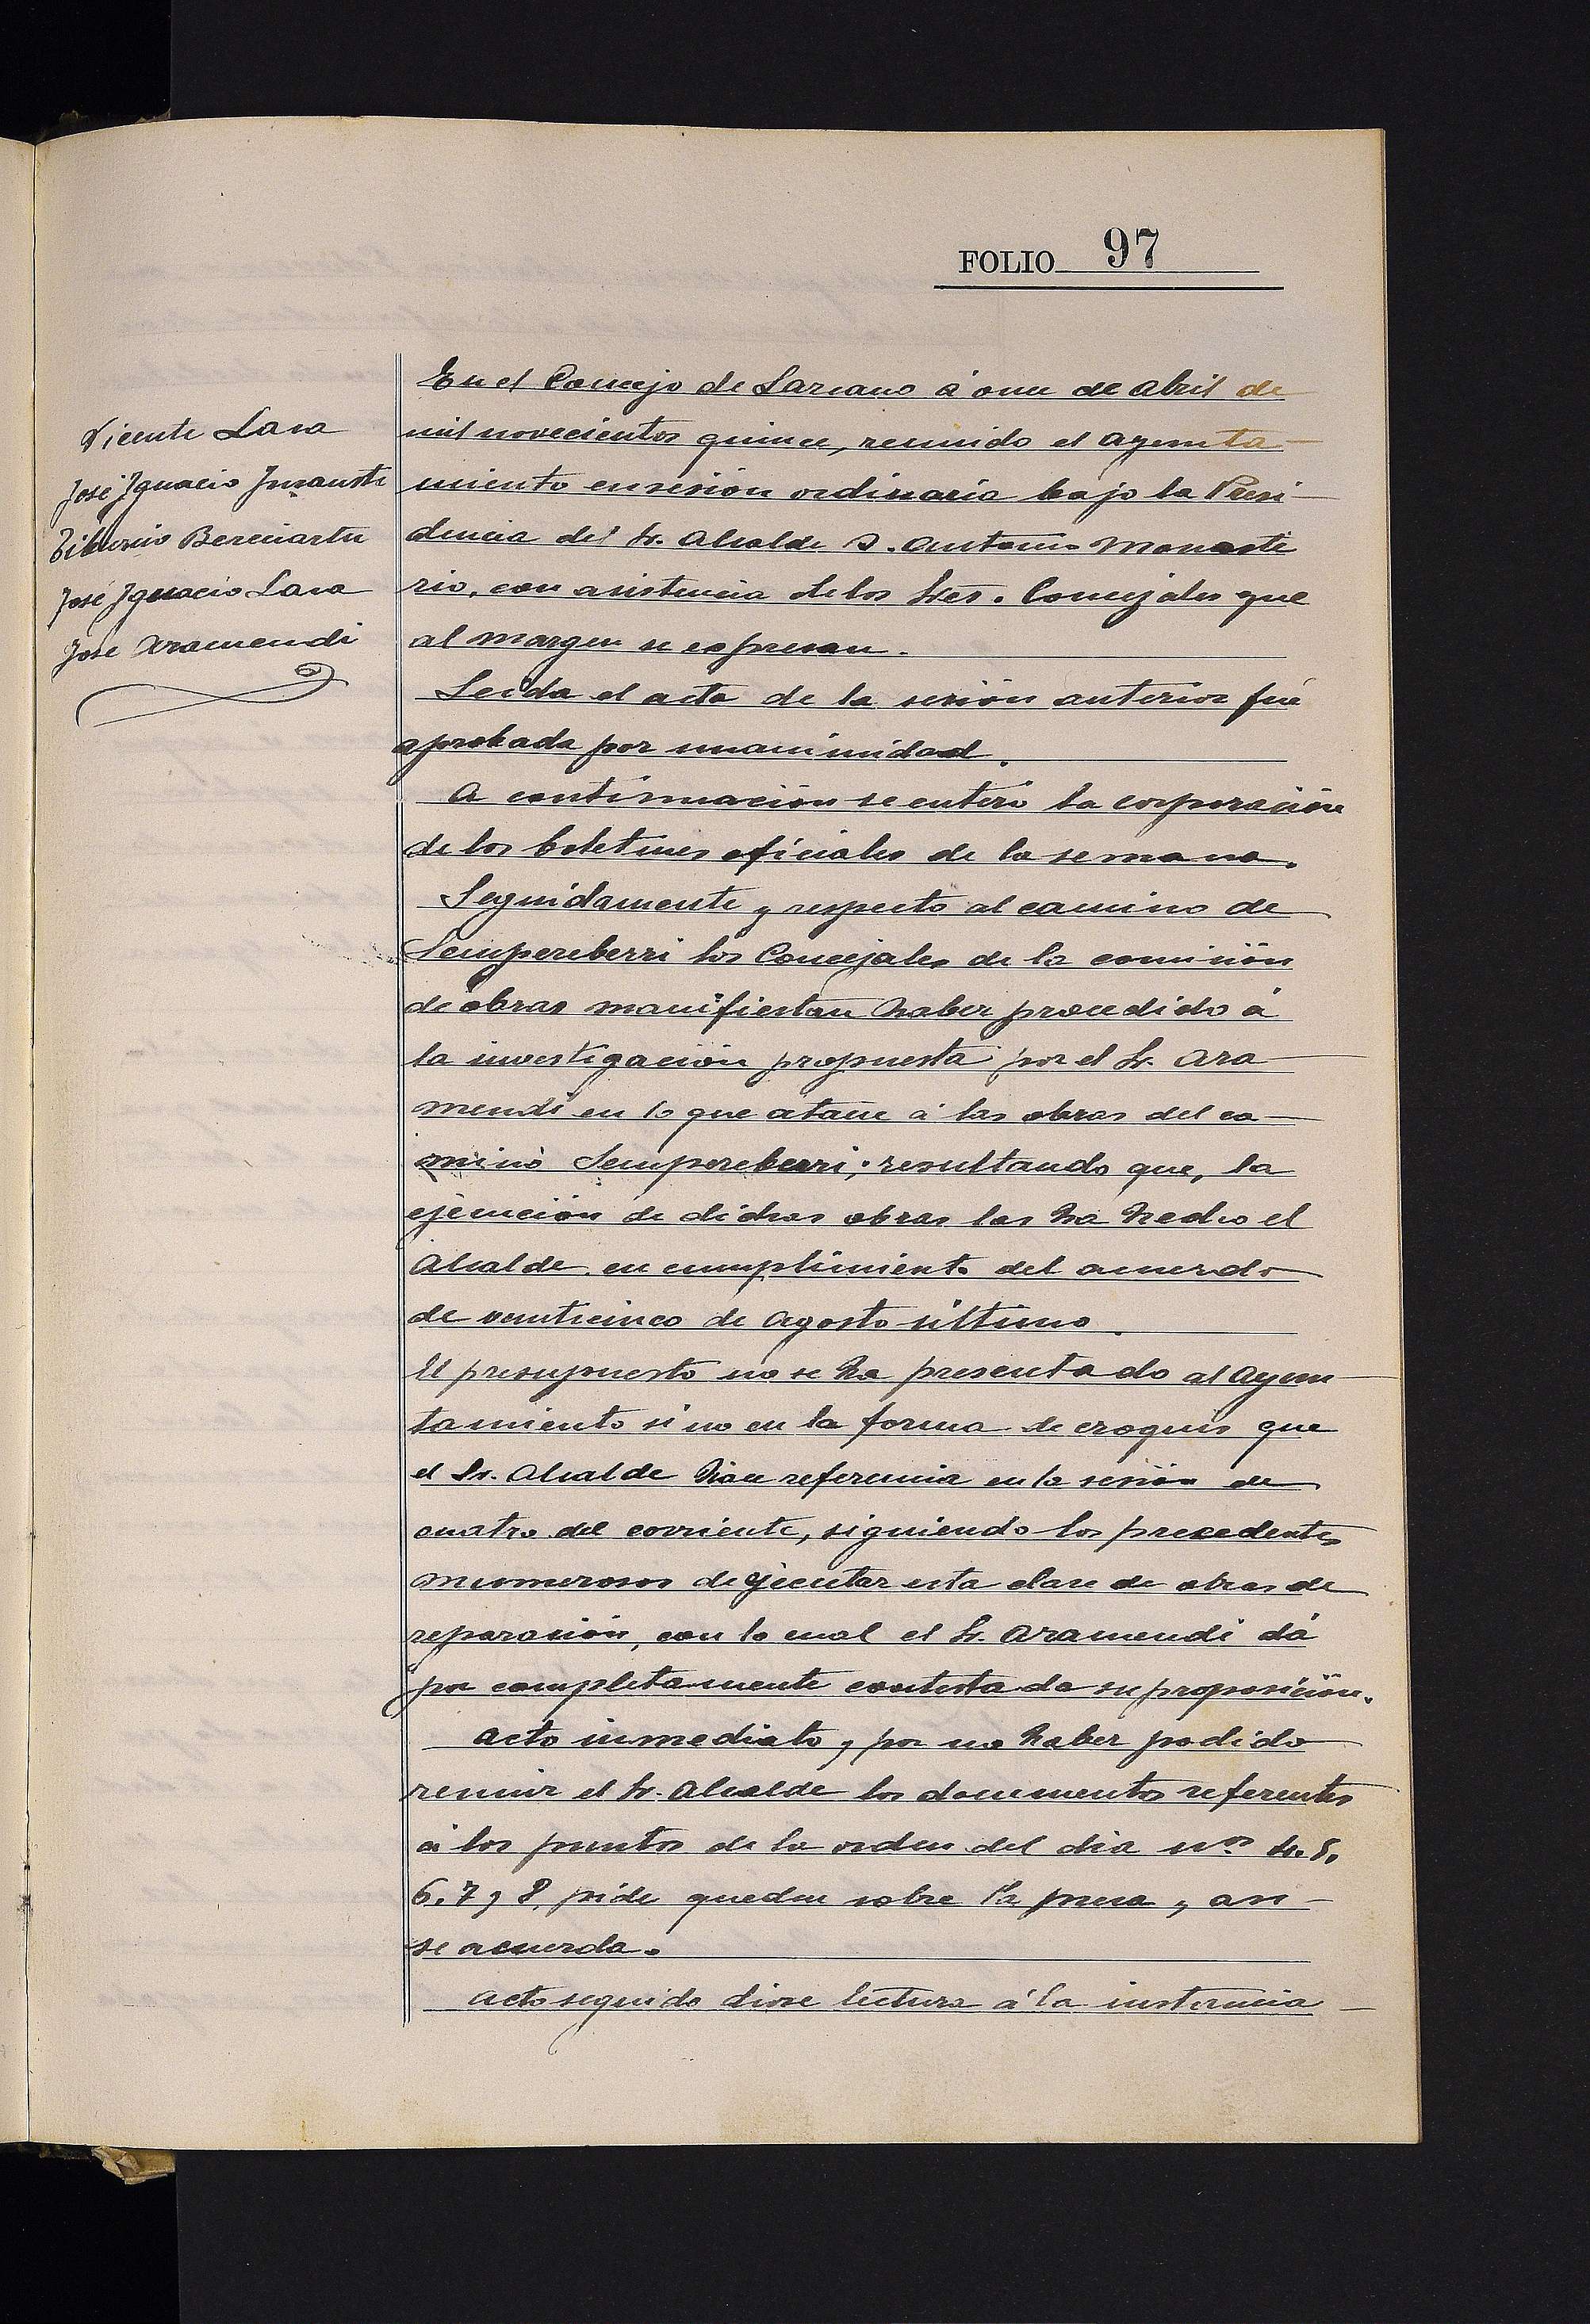 FOLIO 97
Vicente Lasa
José Ignacio Insausti
Tiburcio Berciartu
José Ignacio Lasa
José Aramendi
En el Concejo de Lazcano á once de Abril de
mil novecientos quince, reunido el Ayunta-
miento en sesión ordinaria bajo la Presi-
dencia del Sr. Alcalde D. Antonio Monaste
rio, con asistencia de los Sres. Concejales que
al margen se expresan.
Leida el acta de la sesión anterior fué
aprobada por unanimidad.
A continuación se enteró la corporación
de los boletines oficiales de la semana.
Seguidamente y respecto al camino de
Sempereberri los Concejales de la comisión
de obras manifiestan haber procedido á
la investigación propuesta por el Sr. Ara
mendi en lo que atañe á las obras del ca-
mino Sempereberri; resultando que, la
ejecución de dichas obras las ha hecho el
Alcalde en cumplimiento del acuerdo
de veinticinco de Agosto último.
El presupuesto no se ha presentado al Ayun-
tamiento si no en la forma de croquis que
el Sr. Alcalde hace referencia en la sesión de
cuatro del corriente, siguiendo los precedentes
numerosos de ejecutar esta clase de obras de
reparación, con lo cual el Sr. Aramendi dá
por completamente contestada su proposición.
Acto inmediato y por no haber podido
reunir el Sr. Alcalde los documentos referentes
á los puntos de la orden del dia nos 4. 5.
6. 7 y 8, pide queden sobre la mesa y asi
se acuerda.
Acto seguido dióse lectura á la instancia